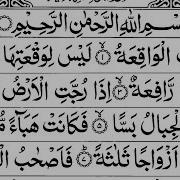 بِسْمِ اللّٰهِ الرَّحْمٰنِ الرَّحِيْمِ
الْوَاقِعَةُ ۙ﴿۱﴾ لَيْسَ لِوَقْعَتِهَا
رَّافِعَةٌ ۙ﴿۳﴾ اِذَا رُجَّتِ الْاَرْضُ
الْجِبَالُ بَسًّا ۙ﴿۵﴾ فَكَانَتْ هَبَآءً
اَزْوَاجًا ثَلٰثَةً ؕ﴿۷﴾ فَاَصْحٰبُ